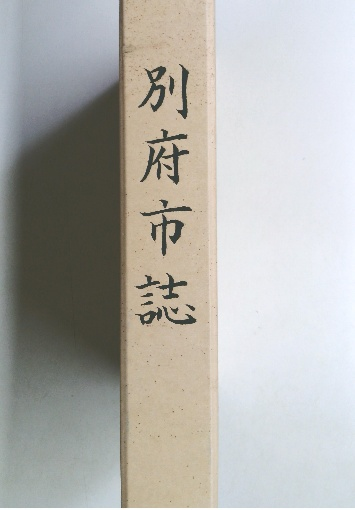 別府市誌